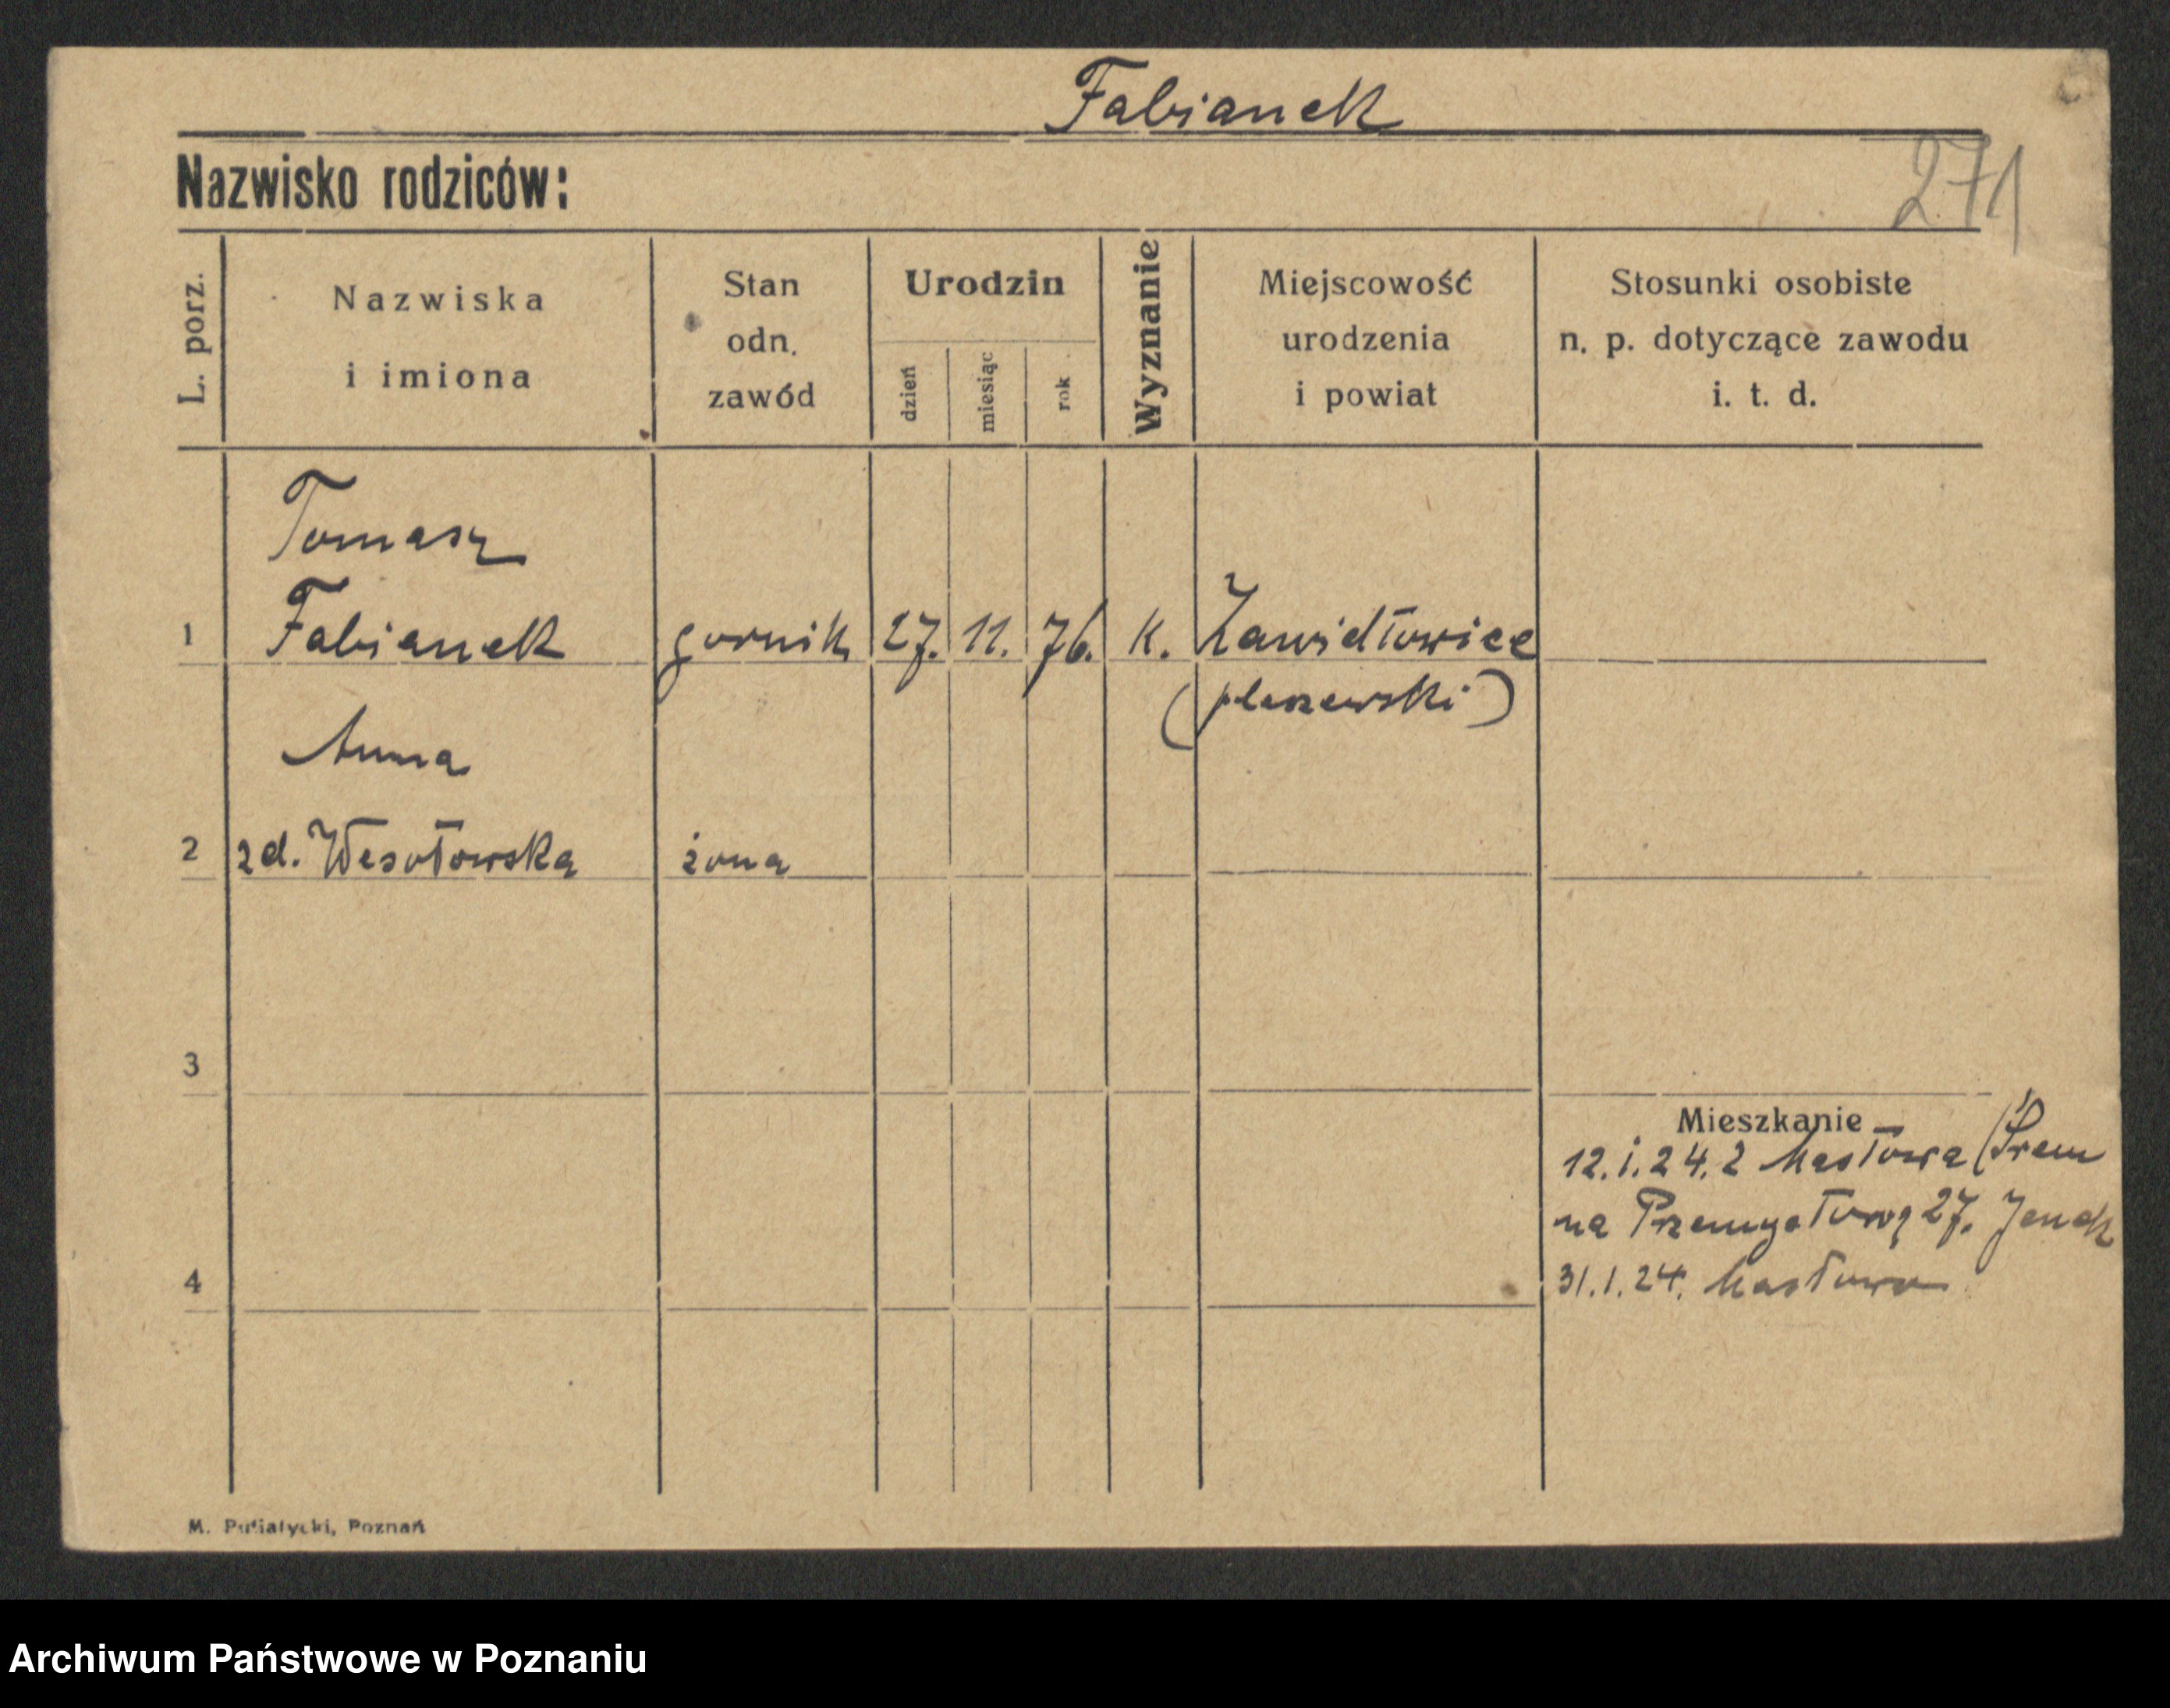 Fabianek
Nazwisko rodziców:
271
L. porz.
Nazwiska
i imiona
Stan
odn.
zawód
Urodzin
dzień
miesiąc
rok
Wyznanie
Miejscowość
urodzenia
i powiat
Stosunki osobiste
n. p. dotyczące zawodu
i. t. d.
Tomasz
1 Fabianek gornik 27. 11. 76. K. Zawidłowice
(pleszewski)
Anna
2 zd. Wesołowska żona
3
Mieszkanie
12.i.24. z Masłowa (Śrem
na Przemysłową 27.
4
31.1.24. Masłowo
M. Putiatycki, Poznań
Archiwum Państwowe w Poznaniu